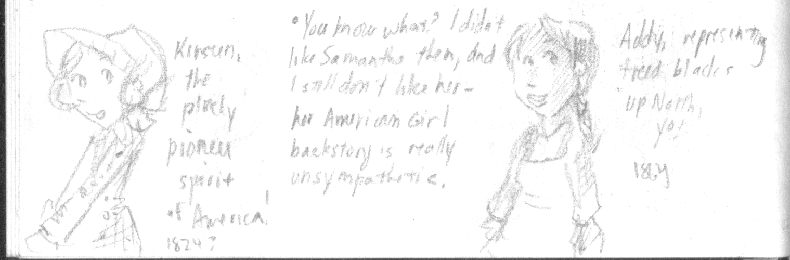 Kirsten,
the
plucky
pioneer
spirit
of America!
1824?
*You know what? I didn't
like Samantha then, and
I still don't like her—
her American Girl
backstory is really
unsympathetic.
Addy, representing
freed blacks
up North,
yo!